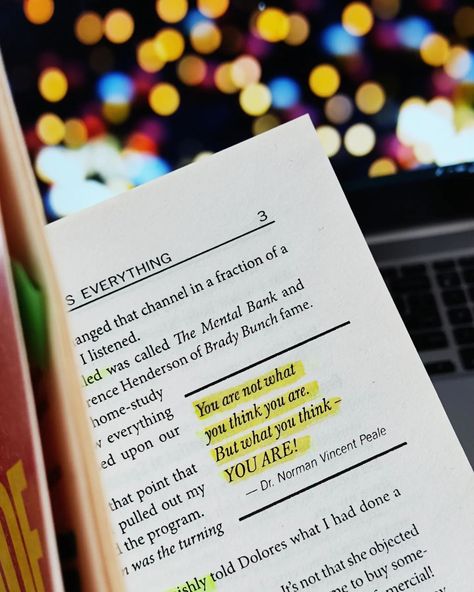 S EVERYTHING 3
anged that channel in a fraction of a
I listened.
led was called The Mental Bank and
rence Henderson of Brady Bunch fame.
home-study
w everything
ed upon our
You are not what
you think you are.
But what you think –
YOU ARE!
— Dr. Norman Vincent Peale
that point that
pulled out my
the program.
n was the turning
ishly told Dolores what I had done a
It's not that she objected
me to buy some-
mercial!